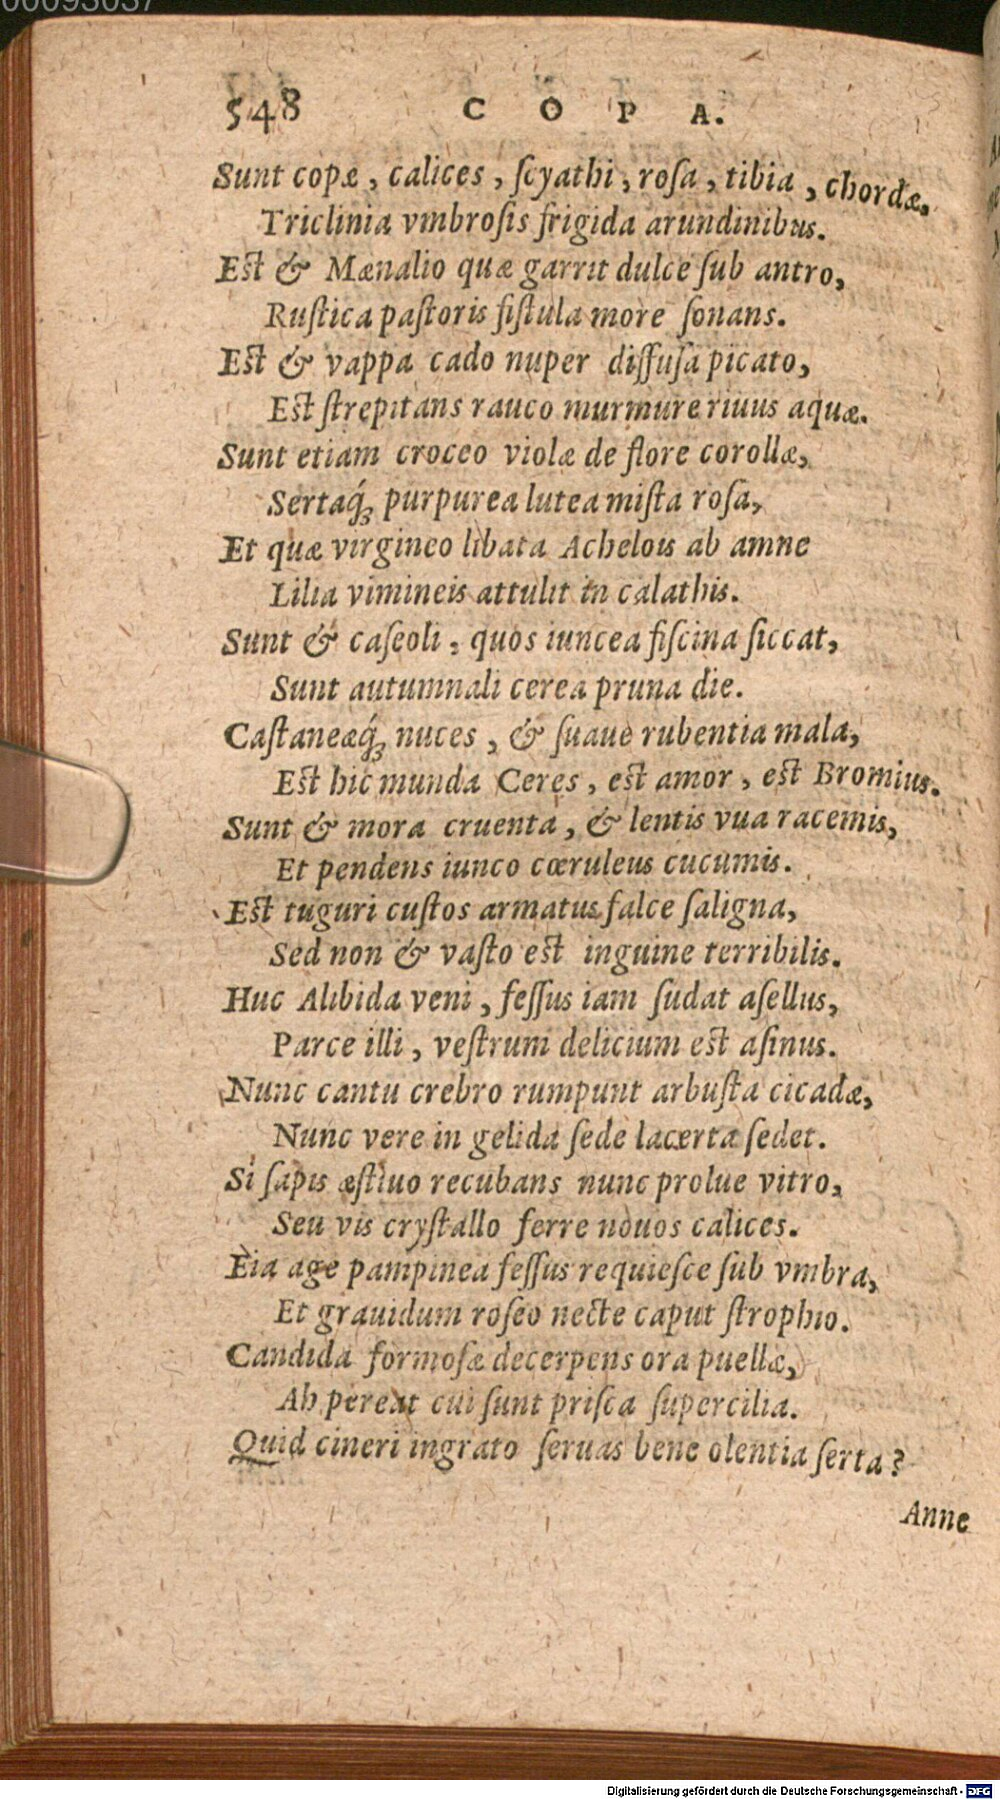 00093037
548 COPA.
Sunt copæ, calices, ſcyathi, roſa, tibia, chordæ,
Triclinia vmbroſis frigida arundinibus.
Est & Mænalio quæ garrit dulce ſub antro,
Ruſtica paſtoris fiſtula more ſonans.
Est & vappa cado nuper diffuſa picato,
Est ſtrepitans rauco murmure riuus aquæ.
Sunt etiam croceo violæ de flore corollæ,
Sertaq́ꝫ purpurea lutea miſta roſa,
Et quæ virgineo libata Achelois ab amne
Lilia vimineis attulit in calathis.
Sunt & caſeoli, quos iuncea fiſcina ſiccat,
Sunt autumnali cerea pruna die.
Caſtaneæq́ꝫ nuces, & ſuaue rubentia mala,
Est hic munda Ceres, est amor, est Bromius.
Sunt & mora cruenta, & lentis vua racemis,
Et pendens iunco cœruleus cucumis.
Est tuguri cuſtos armatus falce ſaligna,
Sed non & vaſto est inguine terribilis.
Huc Alibida veni, feſſus iam ſudat aſellus,
Parce illi, veſtrum delicium est aſinus.
Nunc cantu crebro rumpunt arbuſta cicadæ,
Nunc vere in gelida ſede lacerta ſedet.
Si ſapis æſtiuo recubans nunc prolue vitro,
Seu vis cryſtallo ferre nouos calices.
Eia age pampinea feſſus requieſce ſub vmbra,
Et grauidum roſeo necte caput ſtrophio.
Candida formoſæ decerpens ora puellæ,
Ah pereat cui ſunt priſca ſupercilia.
Quid cineri ingrato ſeruas bene olentia ſerta?
Anne
Digitalisierung gefördert durch die Deutsche Forschungsgemeinschaft - DFG